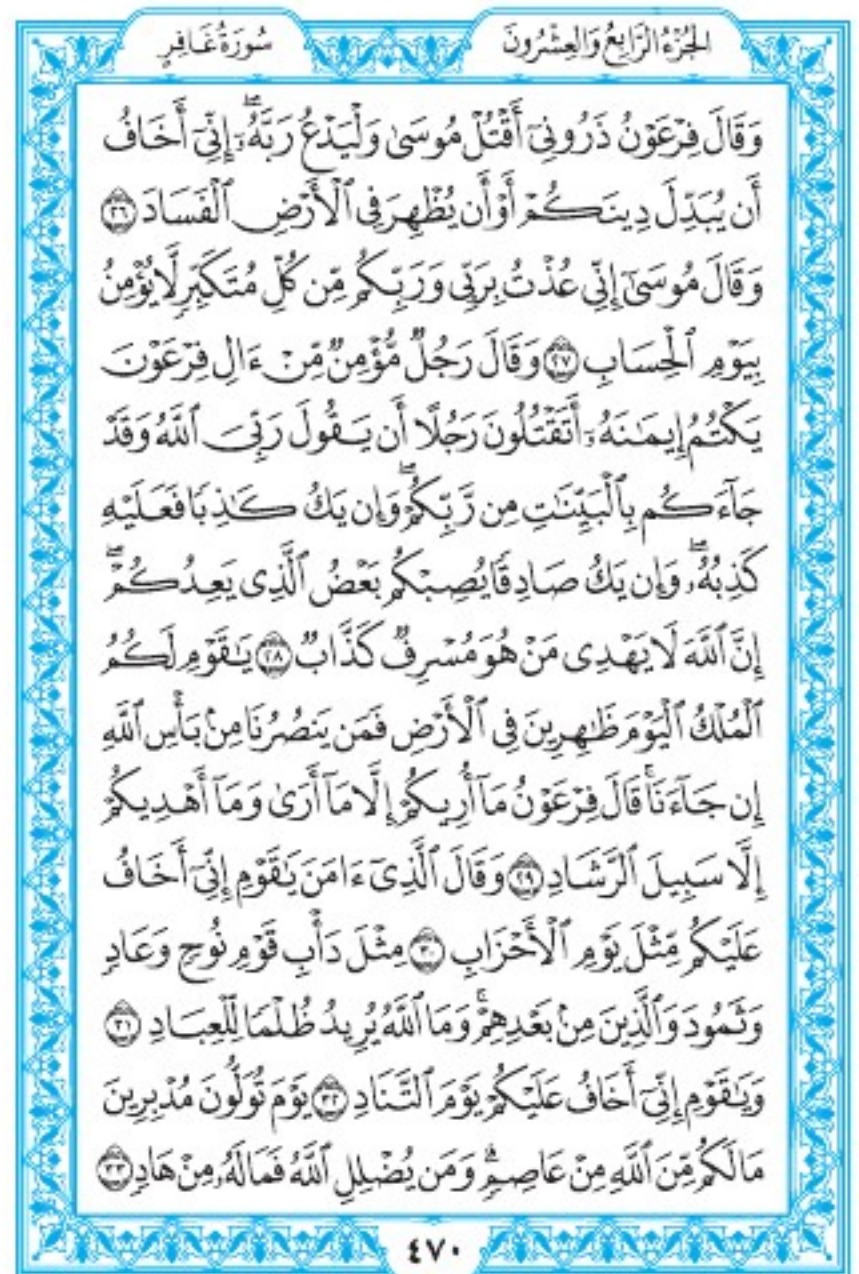 سُورَةُ غَافِرٍ
الجُزْءُ الرَّابِعُ وَالعِشْرُونَ
وَقَالَ فِرْعَوْنُ ذَرُونِيٓ أَقْتُلْ مُوسَىٰ وَلْيَدْعُ رَبَّهُۥٓۖ إِنِّيٓ أَخَافُ
أَن يُبَدِّلَ دِينَكُمْ أَوْ أَن يُظْهِرَ فِي ٱلْأَرْضِ ٱلْفَسَادَ ٢٦
وَقَالَ مُوسَىٰٓ إِنِّي عُذْتُ بِرَبِّي وَرَبِّكُم مِّن كُلِّ مُتَكَبِّرٍ لَّا يُؤْمِنُ
بِيَوْمِ ٱلْحِسَابِ ٢٧ وَقَالَ رَجُلٌ مُّؤْمِنٌ مِّنْ ءَالِ فِرْعَوْنَ
يَكْتُمُ إِيمَٰنَهُۥٓ أَتَقْتُلُونَ رَجُلًا أَن يَقُولَ رَبِّيَ ٱللَّهُ وَقَدْ
جَآءَكُم بِٱلْبَيِّنَٰتِ مِن رَّبِّكُمْۖ وَإِن يَكُ كَٰذِبًا فَعَلَيْهِ
كَذِبُهُۥۖ وَإِن يَكُ صَادِقًا يُصِبْكُم بَعْضُ ٱلَّذِي يَعِدُكُمْۖ
إِنَّ ٱللَّهَ لَا يَهْدِي مَنْ هُوَ مُسْرِفٌ كَذَّابٌ ٢٨ يَٰقَوْمِ لَكُمُ
ٱلْمُلْكُ ٱلْيَوْمَ ظَٰهِرِينَ فِي ٱلْأَرْضِ فَمَن يَنصُرُنَا مِنۢ بَأْسِ ٱللَّهِ
إِن جَآءَنَاۚ قَالَ فِرْعَوْنُ مَآ أُرِيكُمْ إِلَّا مَآ أَرَىٰ وَمَآ أَهْدِيكُمْ
إِلَّا سَبِيلَ ٱلرَّشَادِ ٢٩ وَقَالَ ٱلَّذِيٓ ءَامَنَ يَٰقَوْمِ إِنِّيٓ أَخَافُ
عَلَيْكُم مِّثْلَ يَوْمِ ٱلْأَحْزَابِ ٣٠ مِثْلَ دَأْبِ قَوْمِ نُوحٍ وَعَادٍ
وَثَمُودَ وَٱلَّذِينَ مِنۢ بَعْدِهِمْۚ وَمَا ٱللَّهُ يُرِيدُ ظُلْمًا لِّلْعِبَادِ ٣١
وَيَٰقَوْمِ إِنِّيٓ أَخَافُ عَلَيْكُمْ يَوْمَ ٱلتَّنَادِ ٣٢ يَوْمَ تُوَلُّونَ مُدْبِرِينَ
مَا لَكُم مِّنَ ٱللَّهِ مِنْ عَاصِمٍۗ وَمَن يُضْلِلِ ٱللَّهُ فَمَا لَهُۥ مِنْ هَادٍ ٣٣
٤٧٠